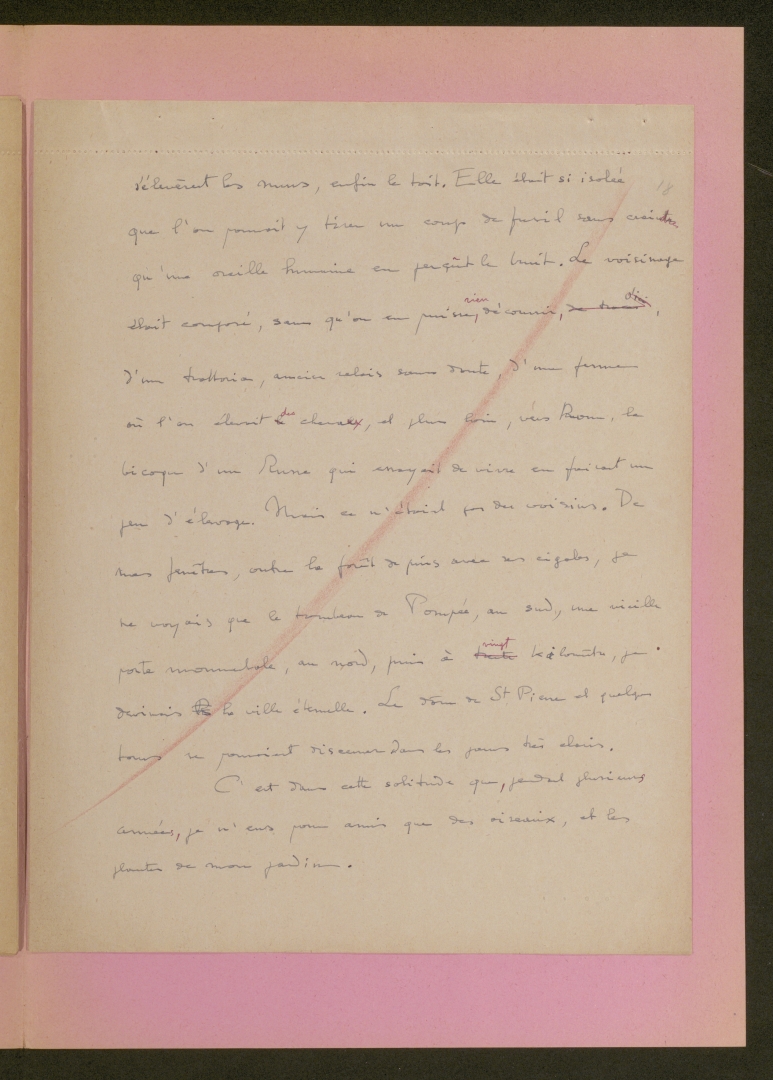 18
s'élevèrent les murs, enfin le toit. Elle était si isolée
que l'on pouvait y tirer un coup de fusil sans craindre
qu'une oreille humaine en perçût le bruit. Le voisinage
était composé, sans qu'on en puisse rien découvrir,
d'une trattoria, ancien relais sans doute, d'une ferme
où l'on élevait des chevaux, et plus loin, vers Rome, la
bicoque d'un Russe qui essayait de vivre en faisant un
peu d'élevage. Mais ce n'était pas des voisins. De
mes fenêtres, outre la forêt de pins avec ses cigales, je
ne voyais que le tombeau de Pompée, au sud, une vieille
poste monumentale, au nord, puis à vingt kilomètres, je
devinais la ville éternelle. Le dôme de St Pierre et quelques
tours se pouvaient discerner dans les jours très clairs.
C'est dans cette solitude que, pendant plusieurs
années, je n'eus pour amis que des oiseaux, et les
plantes de mon jardin.